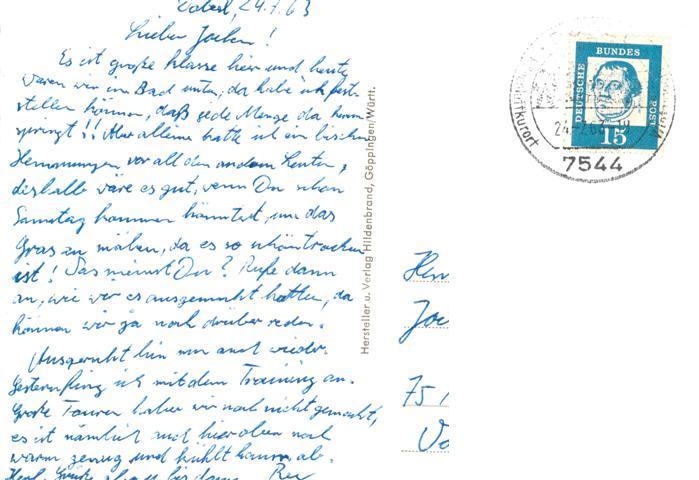 24.7.63
Lieber Jochen!
Es ist große Klasse hier und heute
waren wir im Bad unten, da habe ich fest-
stellen können, daß jede Menge da herum
springt!! Aber alleine hatte ich ein bischen
Hemmungen vor all den andern Leuten,
deshalb wäre es gut, wenn Du schon
Samstag kommen könntest, um das
Gras zu mähen, da es so schön trocken
ist! Was meinst Du? Rufe dann
an, wie wir es ausgemacht hatten, da
können wir ja noch drüber reden.
Ausgeruht bin nun auch wieder.
Gestern fing ich mit dem Training an.
Große Touren haben wir noch nicht gemacht,
es ist nämlich auch hier oben noch
warm genug und kühlt kaum ab.
Herzl. Grüße also bis dann
Hersteller u. Verlag Hildenbrand, Göppingen/Württ.
DEUTSCHE BUNDES POST
15
7544
75